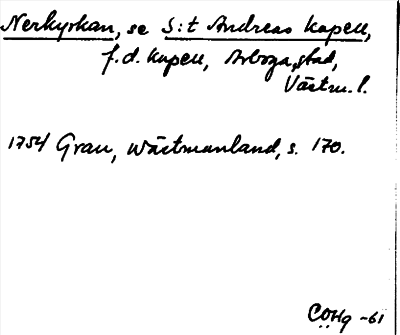 Nerkyrkan, se S:t Andreas kapell,
f.d. kapell, Arboga stad,
Västm. l.
1754 Grau, Wästmanland, s. 170.
CÖHg -61